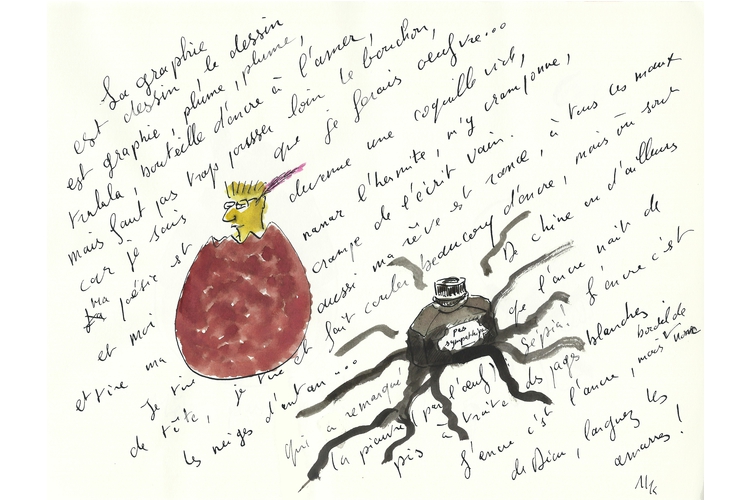 La graphie
est dessin, le dessin
est graphie, plume, plume,
tralala, bouteille d'encre à l'amer,
mais faut pas trop pousser loin le bouchon,
car je sais que je ferais oeufvre...
ma poésie est devenue une coquille vide,
et moi nanar l'hermite, m'y cramponne,
et tire ma crampe de l'écrit vain.
Je tire aussi ma rêve est rance, à tous ces maux
de tête, je tire et fait couler beaucoup d'encre, mais où sont
les neiges d'antan... De chine ou d'ailleurs
qui a remarqué que l'ancre naît de
la pieuvre (pas l'oeuf)! Sépia! L'encre c'est
pis à traite des pages blanches.
L'encre c'est l'ancre, mais bordel de
de Dieu, larguez les
amarres!
pas